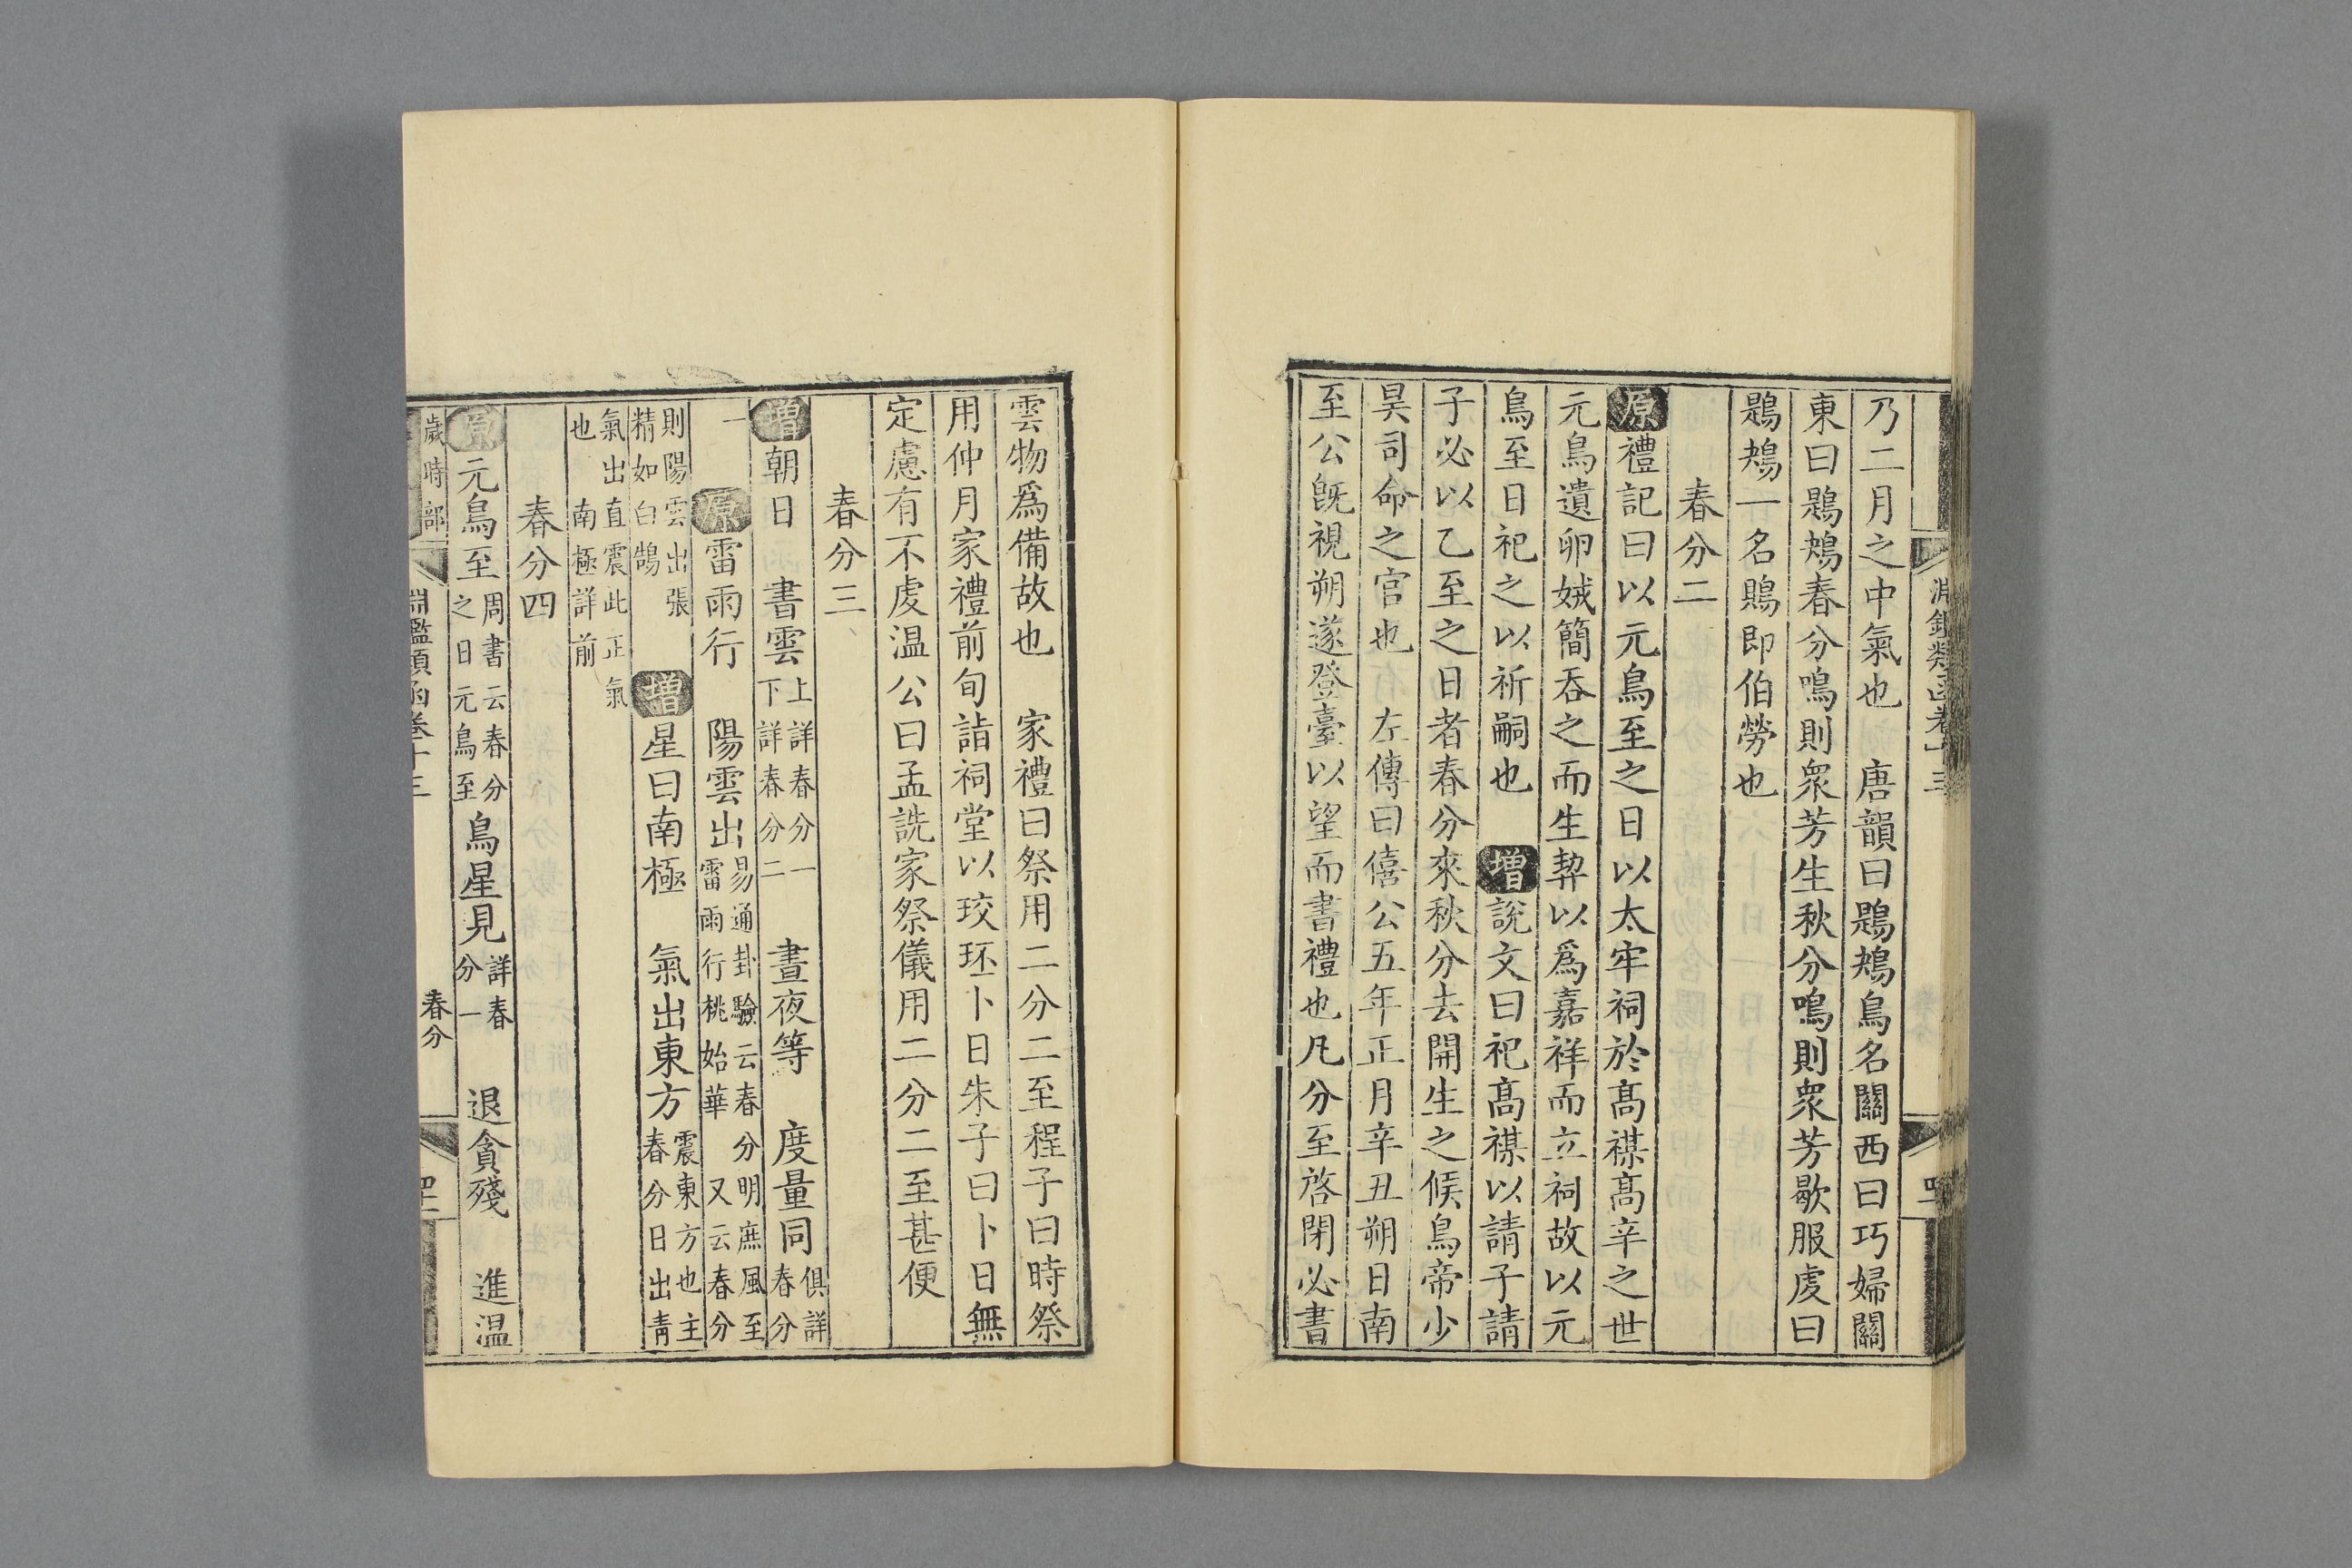 乃二月之中氣也　唐韻曰鶗鴂鳥名關西曰巧婦關
東曰鶗鴂春分鳴則衆芳生秋分鳴則衆芳歇服虔曰
鶗鴂一名鵙即伯勞也
春分二
原禮記曰以元鳥至之日以太牢祠於高禖高辛之世
元鳥遺卵娀簡吞之而生契以爲嘉祥而立祠故以元
鳥至日祀之以祈嗣也　增說文曰祀高禖以請子請
子必以乙至之日者春分來秋分去開生之候鳥帝少
昊司命之官也　左傳曰僖公五年正月辛丑朔日南
至公旣視朔遂登臺以望而書禮也凡分至啓閉必書
雲物爲備故也　家禮曰祭用二分二至程子曰時祭
用仲月家禮前旬詣祠堂以珓环卜日朱子曰卜日無
定慮有不虔温公曰孟詵家祭儀用二分二至甚便
春分三
增朝日　書雲上詳春分一下詳春分二　晝夜等　度量同俱詳春分
一　原雷雨行　陽雲出易通卦驗云春分明庶風至雷雨行桃始華　又云春分
則陽雲出張精如白鵠　增星曰南極　氣出東方震東方也主春分日出靑
氣出直震此正氣也　南極詳前
春分四
原元鳥至周書云春分之日元鳥至　鳥星見詳春分一　退貪殘　進温
歲時部　淵鑑類函卷十三　春分